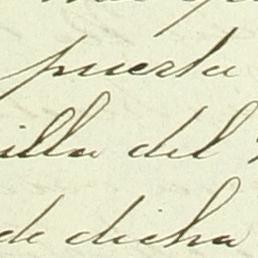 puerta
illa del
de dicha